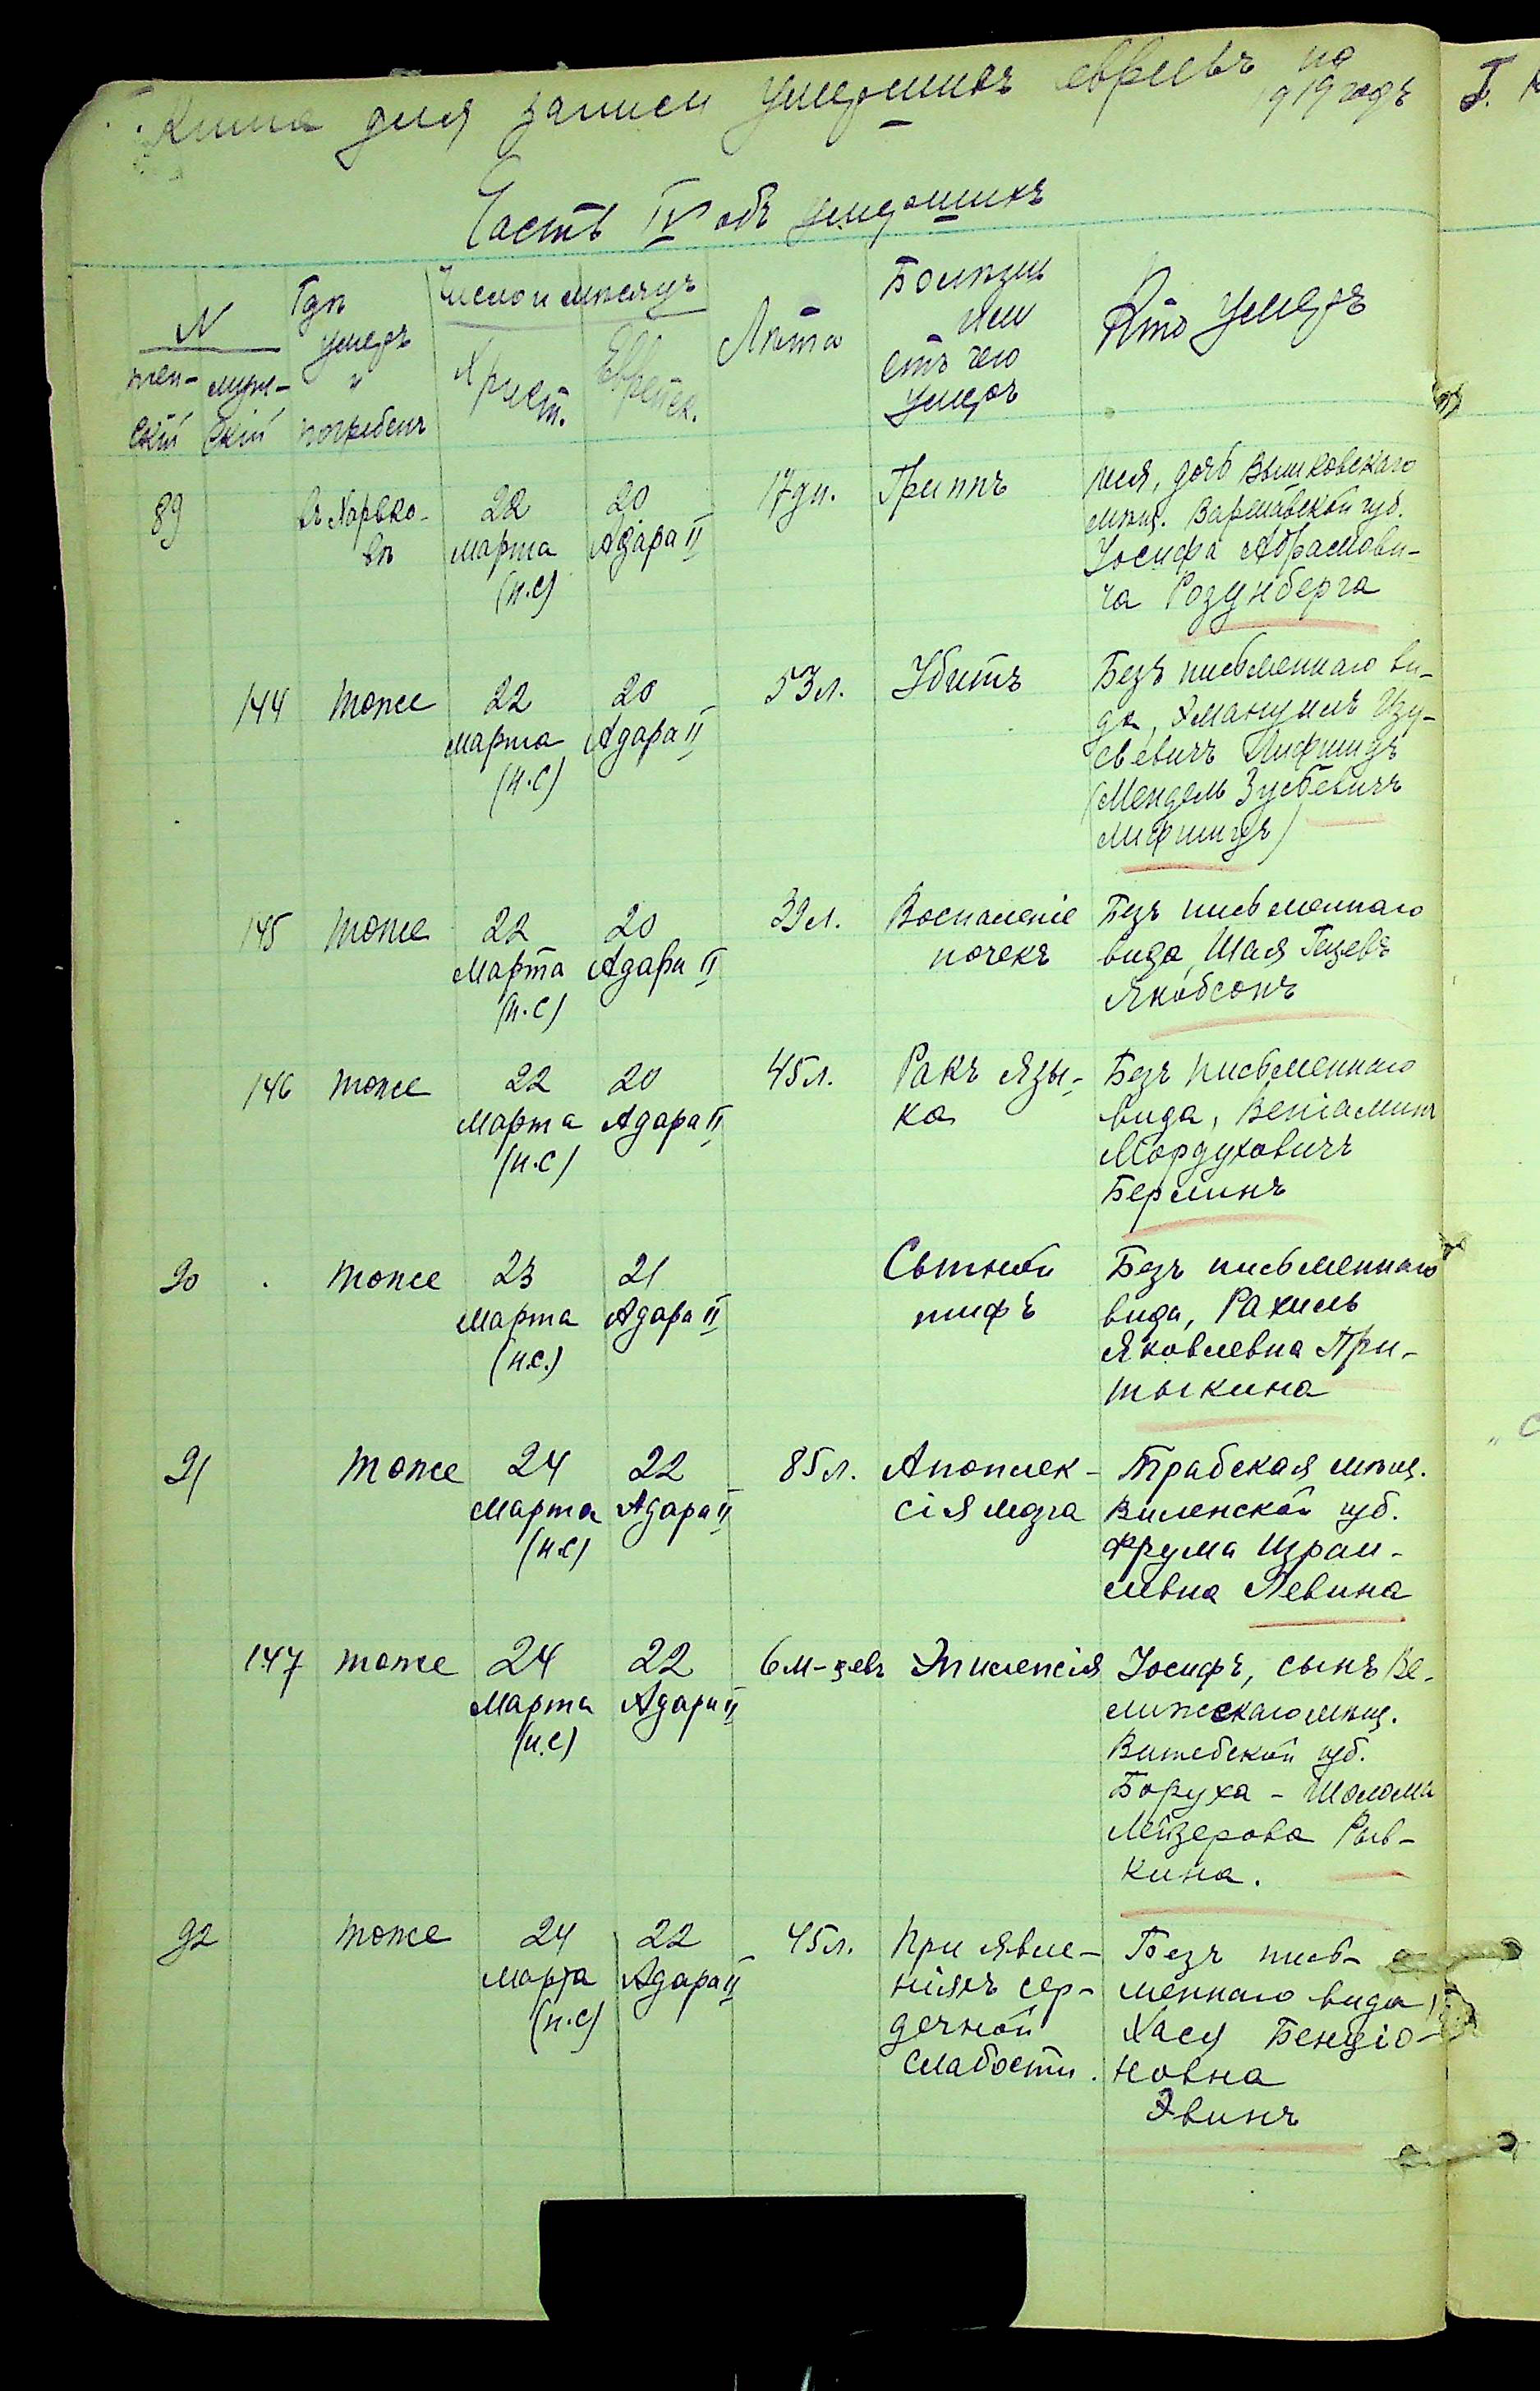 Книга для записи умершихъ евреевъ на 1919 годъ
Часть IV объ умершихъ
N
жен-
скій
муж-
скій
Гдѣ
умеръ
и
погребенъ
Число и мѣсяцъ
Христ.
Еврейск.
Лѣта
Болѣзнь
или
отъ чего
умеръ
Кто умеръ
89 въ Харько-
вѣ
22
Марта
(н.с)
20
Адара II
17 дн. Гриппъ
Лея, дочь Вышковскаго
мѣщ. Варшавской губ.
Іосифа Абрамови-
ча Розунберга
144 тоже
22
Марта
(н.с)
20
Адара II
53 л. Убитъ
Безъ письменнаго ви-
да, Эмануилъ Изу-
сьевичъ Лифшицъ
(Мендель Зусьевичъ
Лифшицъ)
145 тоже
22
Марта
(н.с)
20
Адара II
39 л. Воспаленіе
почекъ
Безъ письменнаго
вида, Шая Гецевъ
Якобсонъ
146 тоже
22
Марта
(н.с)
20
Адара II
45 л. Ракъ язы-
ка
Безъ письменнаго
вида, Веніаминъ
Мордуховичъ
Берлинъ
90 тоже
23
Марта
(н.с.)
21
Адара II
Сыпной
тифъ
Безъ письменнаго
вида, Рахиль
Яковлевна При-
тыкина
91 тоже
24
Марта
(н.с)
22
Адара II
85 л. Апоплек-
сія мозга
Трабская мѣщ.
Виленской губ.
Фрума Израи-
левна Левина
147 тоже
24
Марта
(н.с)
22
Адара II
6 м-цевъ Эпилепсія
Іосифъ, сынъ Ве-
лижскаго мѣщ.
Витебской губ.
Боруха - Шолома
Лейзерова Рыв-
кина.
92 тоже
24
Марта
(н.с)
22
Адара II
45 л. При явле-
ніяхъ сер-
дечной
слабости.
Безъ пись-
меннаго вида,
Хася Бенціо-
новна
Эвинъ